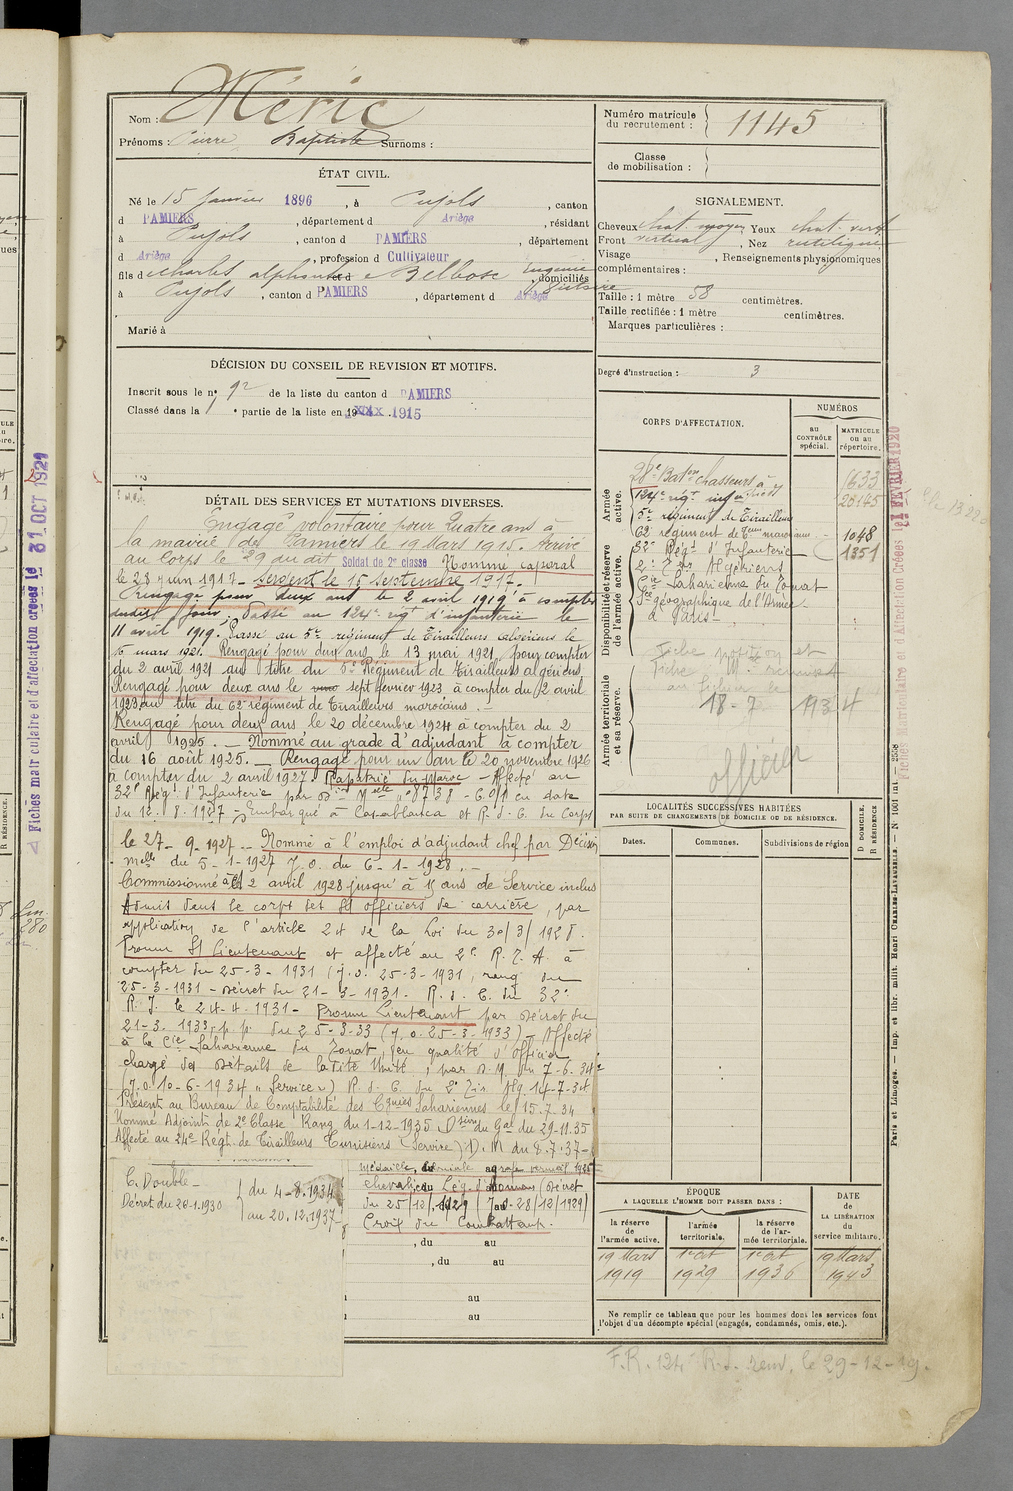 Nom : Méric
Prénoms : Pierre Baptiste Surnoms :
ÉTAT CIVIL.
Né le 15 Janvier 1896, à Pujols, canton
d PAMIERS, département d Ariège, résidant
à Pujols, canton d PAMIERS, département
d Ariège, profession d Cultivateur
fils de Charles alphonse et de Belbosc Eugénie
, domiciliés
à Pujols, canton d PAMIERS, département d Ariège
Marié à
DÉCISION DU CONSEIL DE REVISION ET MOTIFS.
Inscrit sous le n° 92 de la liste du canton d PAMIERS
Classé dans la 1e partie de la liste en 1915
DÉTAIL DES SERVICES ET MUTATIONS DIVERSES.
Engagé volontaire pour Quatre ans à
la mairie de Pamiers le 19 Mars 1915. Arrivé
au Corps le 29 du dit Soldat de 2e classe Nommé caporal
le 28 juin 1917 - sergent le 15 septembre 1917.
Rengagé pour deux ans le 2 avril 1919 à compter
dudit jour, Passé au 124e régt d'infanterie le
11 avril 1919. Passé au 5e régiment de Tirailleurs algériens le
16 mars 1921. Rengagé pour deux ans le 13 mai 1921, pour compter
du 2 avril 1921 au titre du 5e Régiment de Tirailleurs algériens
Rengagé pour deux ans le sept fevrier 1923 à compter du 2 avril
1923 au titre du 62e régiment de Tirailleurs marocains. -
Rengagé pour deux ans le 20 décembre 1924 à compter du 2
avril 1925. - Nommé au grade d'adjudant à compter
du 16 août 1925. - Rengagé pour un an le 20 novembre 1926
à compter du 2 avril 1927. Rapatrié du Maroc - Affecté au
32e Régt d'Infanterie par Don Melle n° 8738 - 6.0/1 en date
du 12. 8. 1927 - Embarqué à Casablanca et R. d. C. du Corps
le 27- 9-1927 -- Nommé à l'emploi d'adjudant chef par Décision
melle du 5-1-1927 J.O. du 6-1-1928. -
Commissionné à et 2 avril 1928 jusqu'à 15 ans de Service inclus
Admis dans le corps des St officiers de carrière, par
application de l'article 24 de la Loi du 30/3/1928.
Promu St Lieutenant et affecté au 2e R.T.A. à
compter du 25-3-1931 (J.O. 25-3-1931, rang du
25-3-1931 - décret du 21-3-1931. R. d. C. du 32e
R.I. le 24-4-1931 - Promu Lieutenant par décret du
21-3. 1933, p.p. du 25-3-33 (J.O. 25-3-1933) - Affecté
à la Cie Saharienne du Touat, en qualité d'officier
chargé des Détails de la dite Unité, par D.M. du 7-6.34
(J.O. 10-6-1934 "Service") R. d. C. du 2e Tir. Alg. 14-7-34
Présent au Bureau de Comptabilité des Cgnies Sahariennes le 15.7.34
Nommé Adjoint de 2e Classe Rang du 1-12-1935 Dsion du Gal du 29-11.35
Affecté au 24e Régt de Tirailleurs Tunisiens (Service) D.M du 8.7.37-
C. Double -
Décret du 26-1.1930
du 4-8.1934
au 20.12.1937
médaille coloniale agrafe vermeil 1925
chevalier Lég. d'honneur (Décret
du 25/12/1929 (J.O. 28/12/1929)
Croix du Combattant.
, du au
, du au
au
au
Numéro matricule
du recrutement : 1145
Classe
de mobilisation :
SIGNALEMENT.
Cheveux chat. moyen Yeux chat. vert
Front vertical, Nez rectiligne
Visage , Renseignements physionomiques
complémentaires :
Taille : 1 mètre 58 centimètres.
Taille rectifiée : 1 mètre centimètres.
Marques particulières :
Degré d'instruction : 3
CORPS D'AFFECTATION.
NUMÉROS
au
CONTRÔLE
spécial.
MATRICULE
ou au
répertoire.
Armée
active.
28e Baton Chasseurs à 1633
124e régt infanterie 20145
5e régiment de Tirailleurs
Disponibilité et réserve
de l'armée active.
62e régiment de Teurs marocains 1048
32e Régt d'Infanterie 1351
2e Tirs Algériens
Cie Saharienne du Touat
Sce géographique de l'Armée
à Paris -
Armée territoriale
et sa réserve.
Fiche position et
Fiche
au fichier le
18-7 1934
officier
LOCALITÉS SUCCESSIVES HABITÉES
PAR SUITE DE CHANGEMENTS DE DOMICILE OU DE RÉSIDENCE.
D DOMICILE.
R RÉSIDENCE
Dates.
Communes.
Subdivisions de région
ÉPOQUE
A LAQUELLE L'HOMME DOIT PASSER DANS :
la réserve
de
l'armée active.
l'armée
territoriale.
la réserve
de l'ar-
mée territoriale.
DATE
de
LA LIBÉRATION
du
service militaire.
19 Mars 1er Oct 1er Oct 19 Mars
1919 1929 1936 1943
Ne remplir ce tableau que pour les hommes dont les services font
l'objet d'un décompte spécial (engagés, condamnés, omis, etc.).
F.R. 124e R.I. renv. le 29-12-19.
Paris et Limoges. — Imp. et libr. milit. Henri CHARLES-LAVAUZELLE. — N° 1001 int. — 2558
Fiches Matriculaire et d'Affectation Créées le 1 FEVRIER 1920
Fiches matriculaire et d'affectation créées le 31 OCT 1921